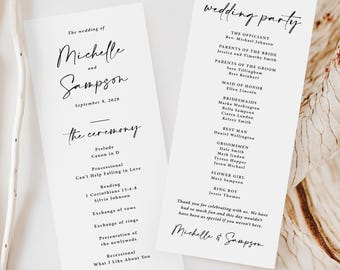 The wedding of
Michelle
and
Sampson
September 6, 2020
the ceremony
Prelude
Canon in D
Processional
Can't Help Falling in Love
Reading
1 Corinthians 13:4-8
Silvia Johnson
Exchange of vows
Exchange of rings
Presentation of
the newlyweds
Recessional
What I Like About You
wedding party
THE OFFICIANT
Rev. Michael Johnson
PARENTS OF THE BRIDE
Jessica and Timothy Smith
PARENTS OF THE GROOM
Sara Tillingham
Bast Reinhart
MAID OF HONOR
Ellen Lincoln
BRIDESMAIDS
Marka Washington
Bella Sampson
Ciarra Landon
Kelsey Smith
BEST MAN
Daniel Wellington
GROOMSMEN
Dale Smith
Mark Lindon
Tyson Hopper
Jacob Smith
FLOWER GIRL
Mary Sampson
RING BOY
Jessie Thomas
Thank you for celebrating with us. We have
had so much fun and this day wouldn't
have been as special if you weren't here.
Michelle & Sampson